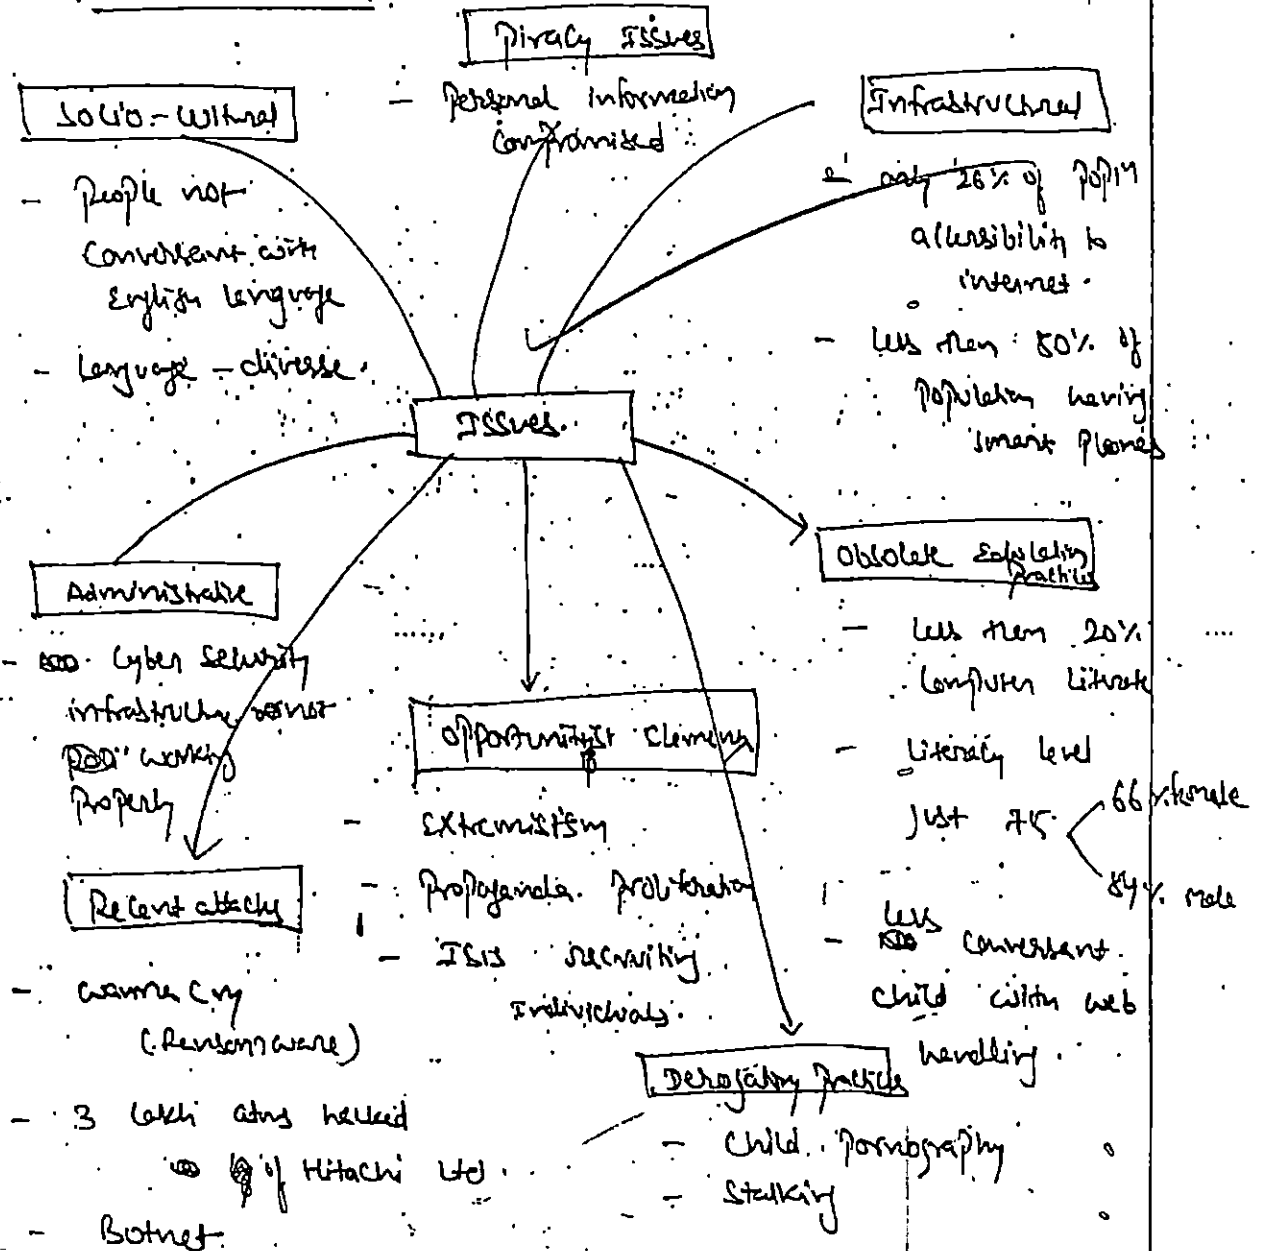 Piracy Issues
- Personal information
compromised
Socio-cultural
- People not
conversant with
English language
- Language - diverse.
Infrastructural
- only 26% of popln
accessibility to
internet.
- less than 50% of
population having
smart phones
Issues.
Administrative
- Cyber security
infrastructure not
working
properly
Recent attacks
- wanna cry
(Ransomware)
- 3 lakh atms hacked
of Hitachi Ltd.
- Botnet
Opportunitist elements
- Extremistism
- Propoganda proliferation
- ISIS recruiting
individuals.
Derogatory practices
- child pornography
- Stalking
Obsolete Education
practices
- less than 20%
computer literate
- literacy level
just 75
66% female
84% male
- less conversant
child with web
handling.